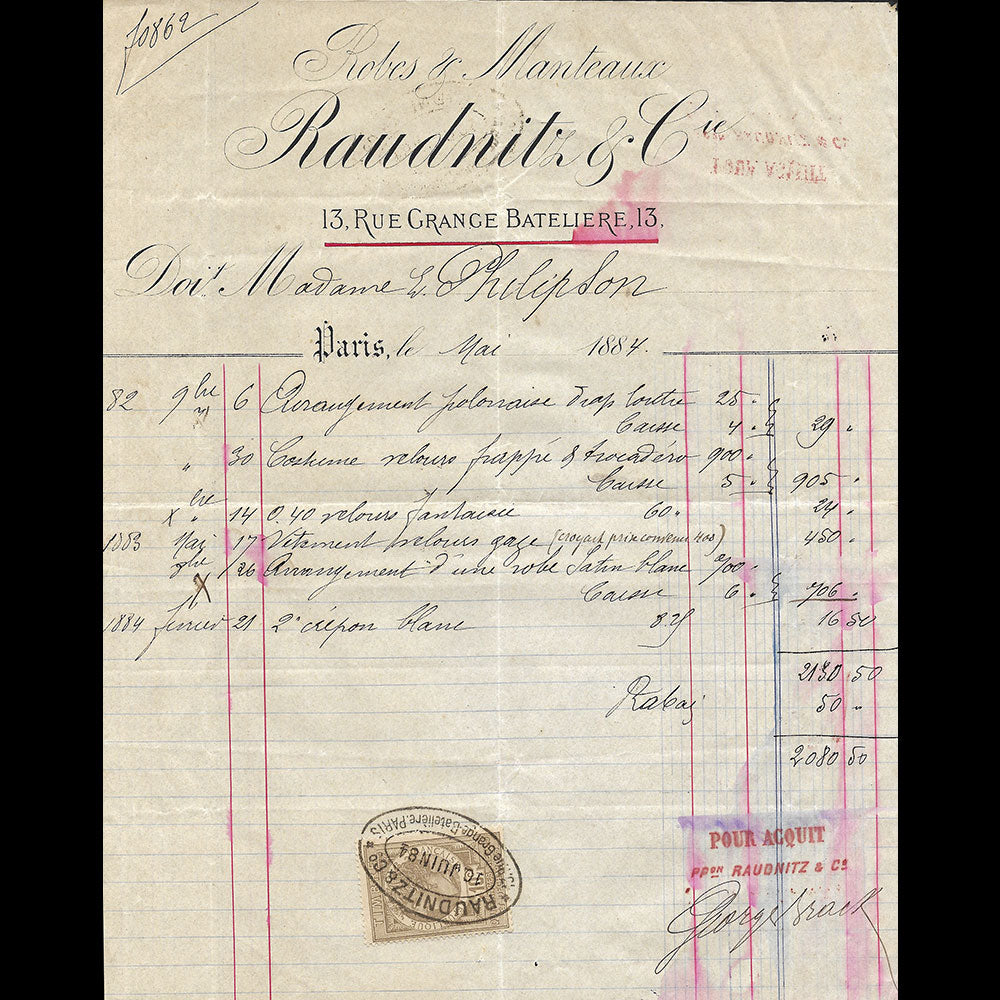 f0862
Robes & Manteaux
Raudnitz & Cie
RAUDNITZ & Co
POUR ACQUIT
13, RUE GRANGE BATELIERE, 13,
Doit Madame L. Philipson
Paris, le Mai 1884.
82 9bre 6 Arrangement polonaise drap loutre 25 "
Caisse 4 " 29 "
" 30 Costume velours frappé & trocadéro 900 "
Caisse 5 " 905 "
X " 14 0.40 velours fantaisie 60 " 24 "
1883 Mai 17 Vêtement velours gaze (croyait prix convenu 400) 450 "
X 26 Arrangement d'une robe Satin blanc 700 "
Caisse 6 " 706 "
1884 fevrier 21 2 crépon blanc 8 25 16 50
2130 50
Rabais 50 "
2080 50
13, Rue Grange-Batelière. PARIS
16 JUIN 84
RAUDNITZ & Co
POUR ACQUIT
PPON RAUDNITZ & Co